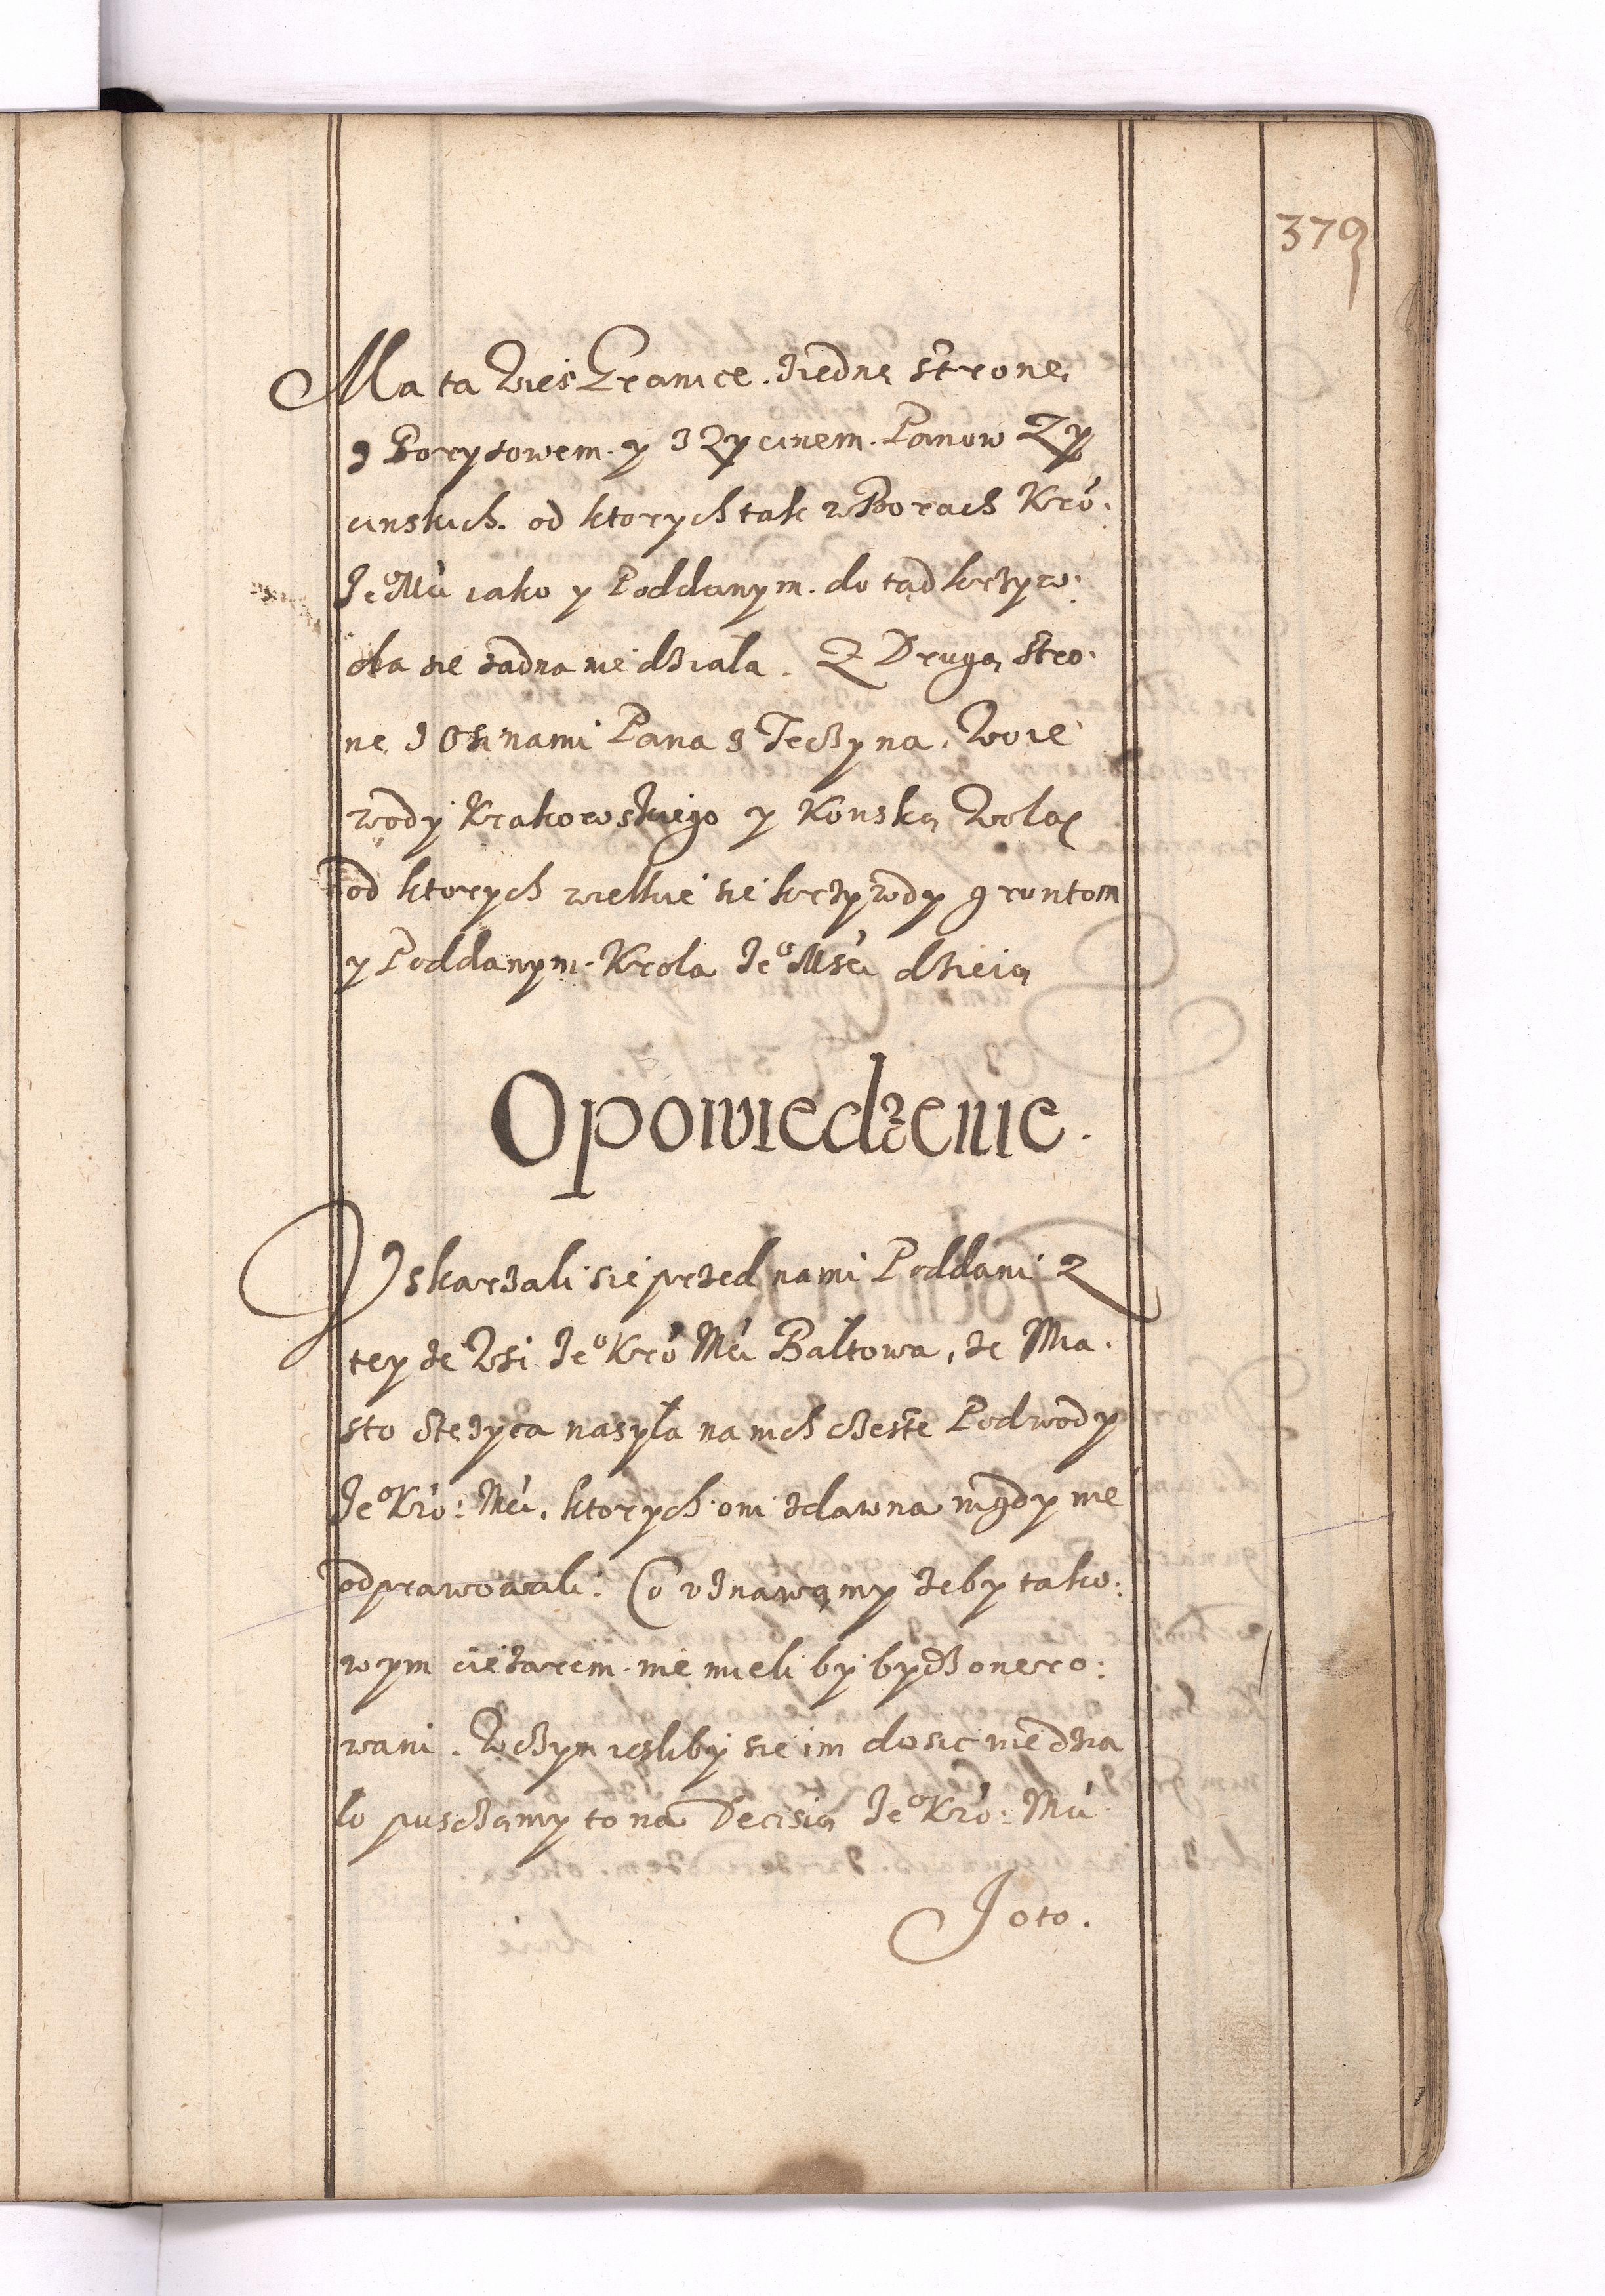 379
Ma ta Wieś Granice. z iednę stronę
z Borysowem. y z Zycinem. Panow Zy
cinskich. od ktorych tak w Borach Kro:
Jeo Mci iako y Poddanym. do tąd krzyw:
da sie żadna nie działa. Z Drugą stro:
nę z Osinami Pana z Teczyna, Woie
wody Krakowskiego y Konską Wolą
od ktorych wielkie sie krzywdy gruntom
y Poddanym. Krola Jeo Msci dzieią
Opowiedzenie.
Vskarzali sie przed nami Poddani z
tey że Wsi Jeo Kro Mci Bałtowa, że Mia.
sto Stężyca nasyła na nich częste Podwody
Jeo Kro: Mci, ktorych oni zdawna nigdy nie
odprawowali: Co vznawamy żeby tako:
wym ciężarem. nie mieli by bydz onero:
wani. W czym iesliby sie im dosic nie dzia
ło puszczamy to na Decisią Jeo Kro: Mci
Joto.